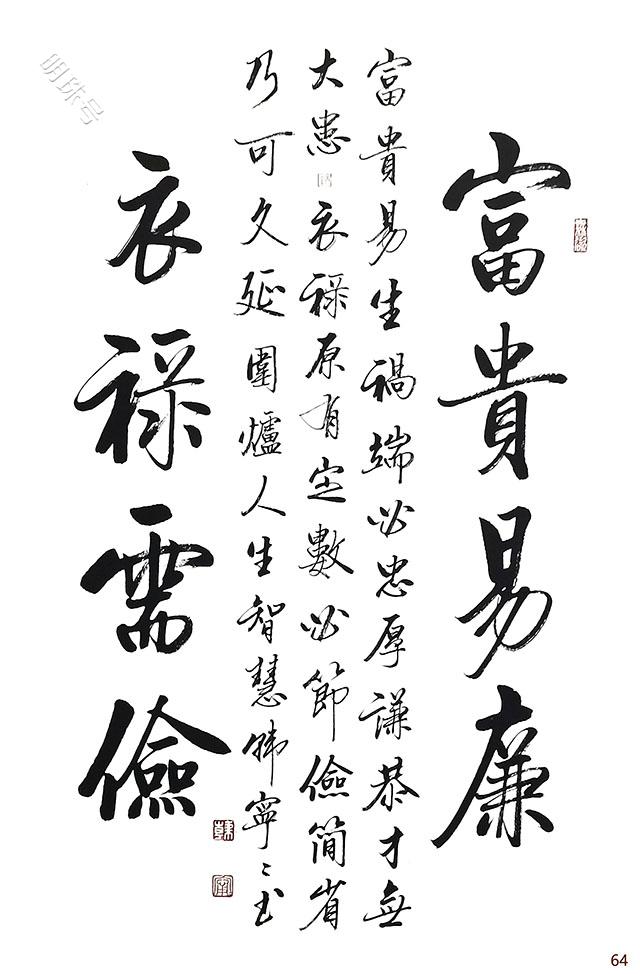 富貴易廉
富貴易生禍端必忠厚謙恭才無
大患衣祿原有定數必節儉簡省
乃可久延圍爐人生智慧韓寧寧书
衣祿需儉
明珠号
64